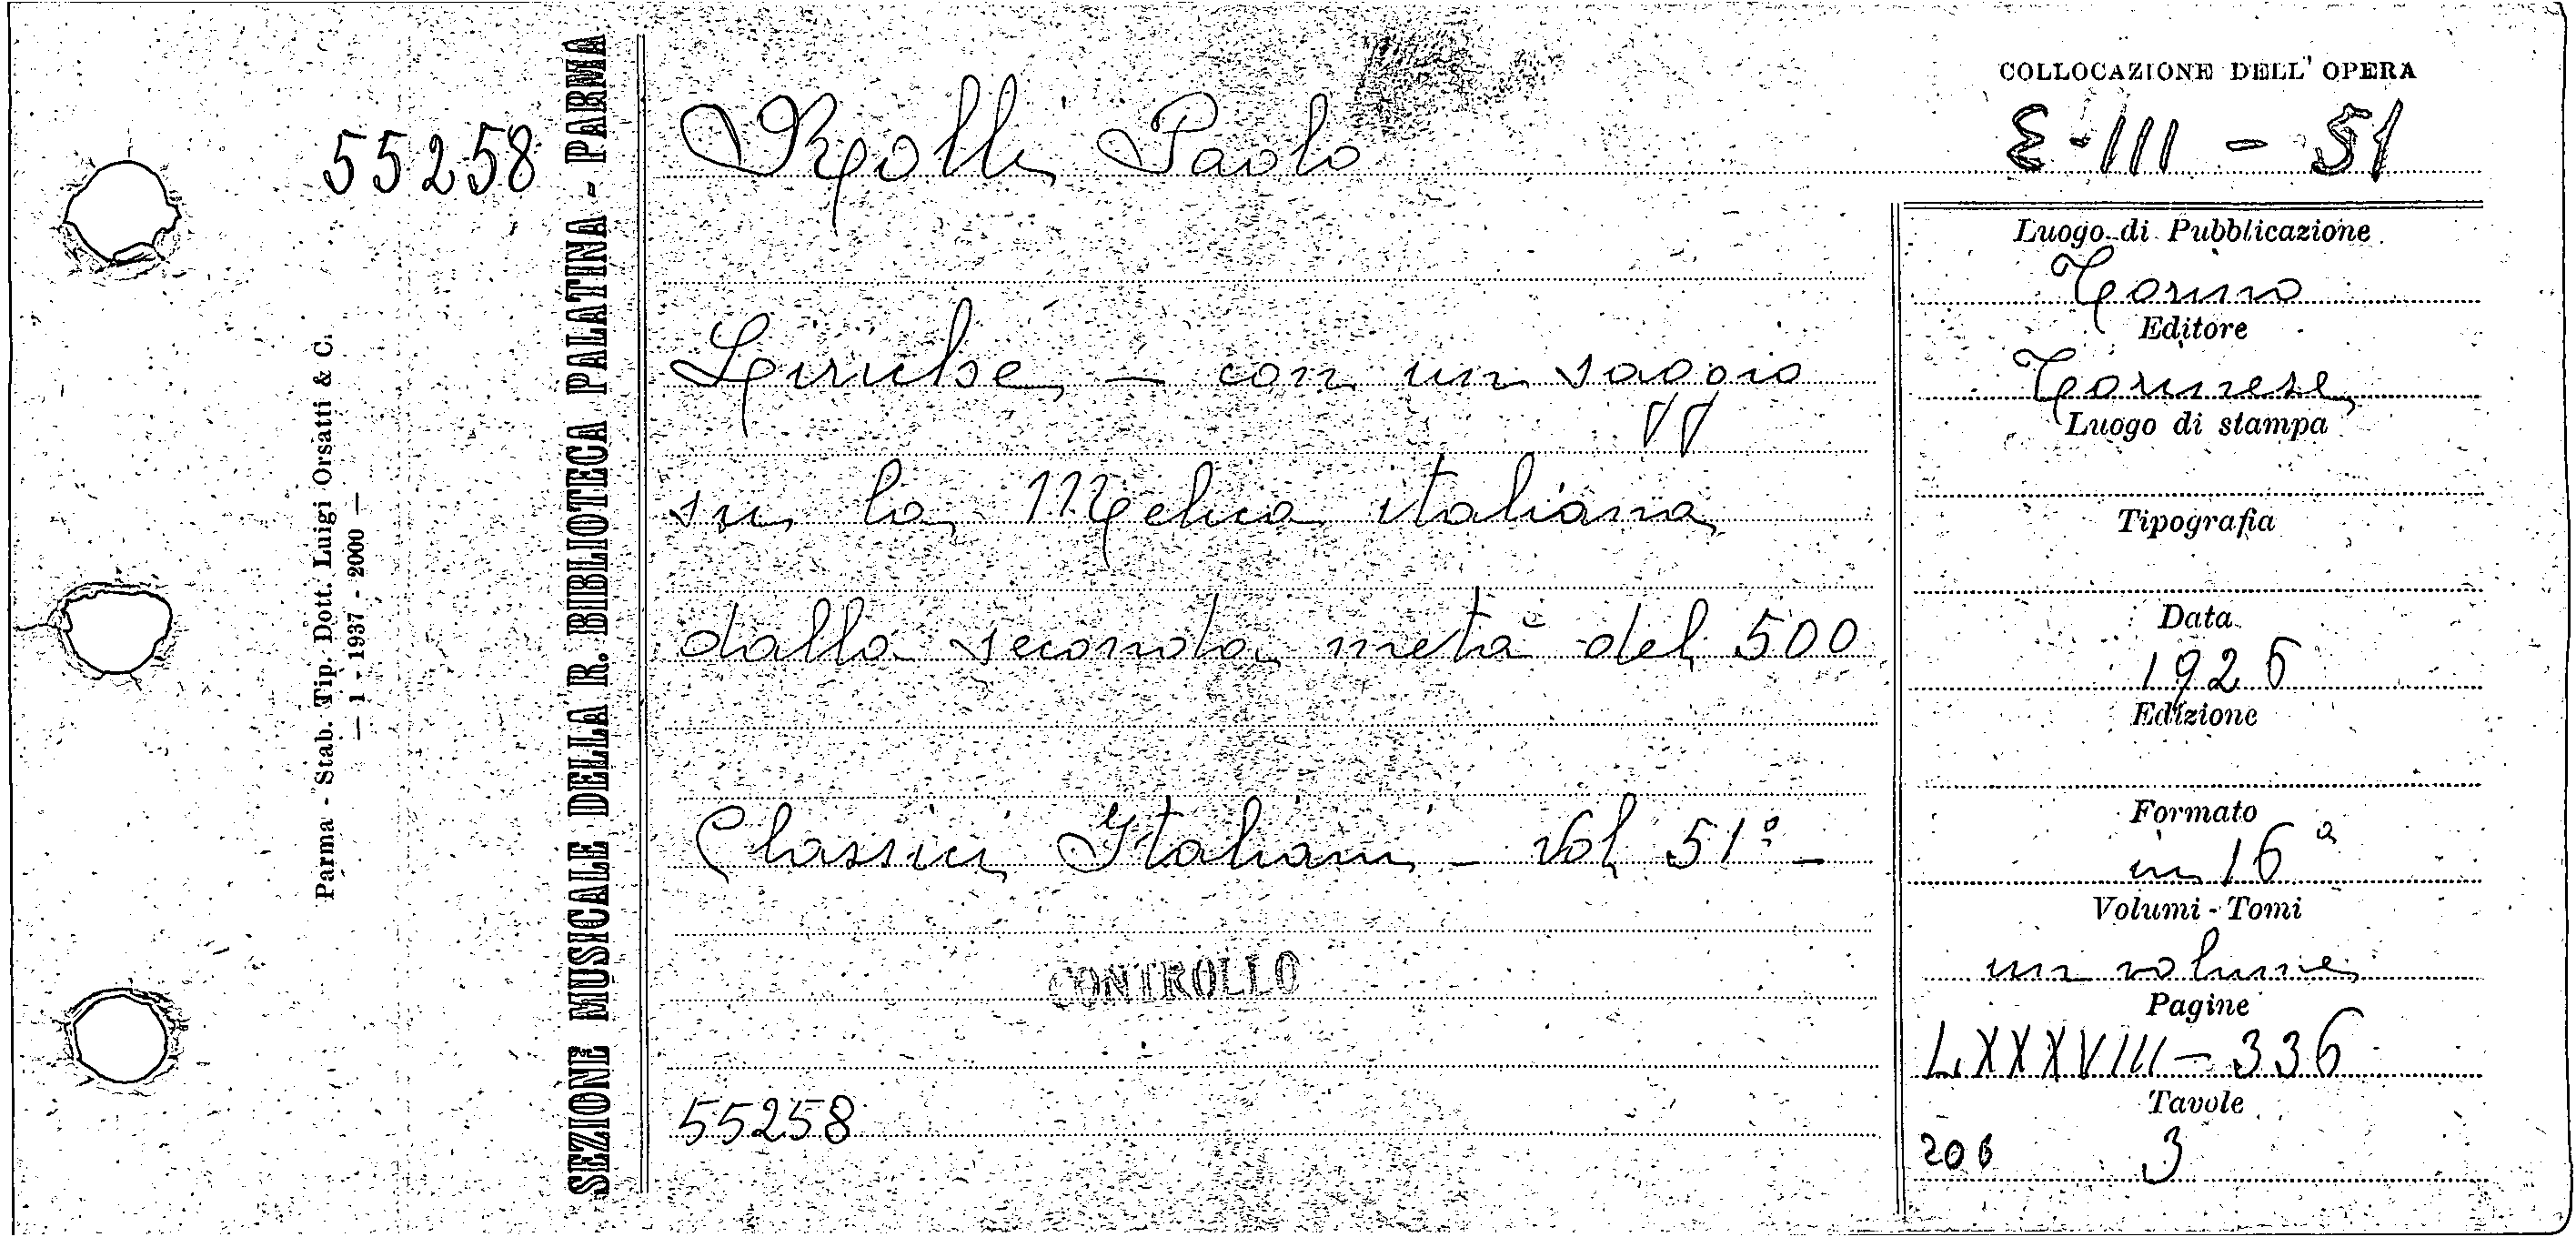 55258
Parma - Stab. Tip. Dott. Luigi Orsatti & C.
— 1 - 1937 - 2000 —
SEZIONE MUSICALE DELLA R. BIBLIOTECA PALATINA - PARMA
Rolli Paolo
Liriche - con un saggio
su la Melica italiana
dalla seconda metà del 500
Classici Italiani - Vol 51° -
CONTROLLO
55258
COLLOCAZIONE DELL' OPERA
E-III - 51
Luogo di Pubblicazione
Torino
Editore
Torinese
Luogo di stampa
Tipografia
Data
1926
Edizione
Formato
in 16°
Volumi - Tomi
un volume
Pagine
LXXXVIII - 336
Tavole
206 3